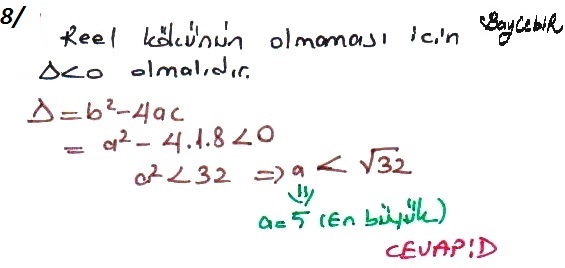 8/
Reel kökünün olmaması için BayCebir
Δ<0 olmalıdır.
Δ=b²-4ac
= a²-4.1.8<0
a²<32 => a < √32
a=5 (En büyük)
CEVAP:D